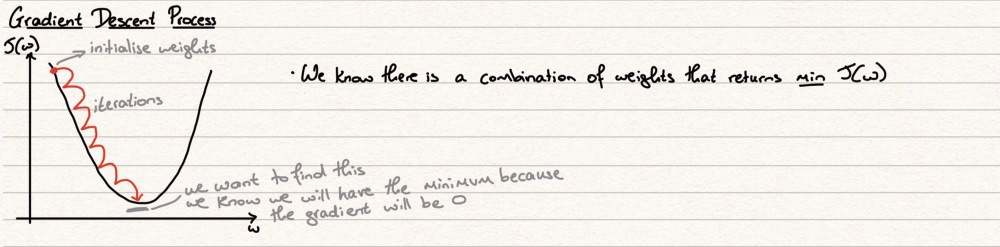 Gradient Descent Process
J(w)
initialise weights
· We know there is a combination of weights that returns min J(w)
iterations
we want to find this
we know we will have the minimum because
the gradient will be 0
w